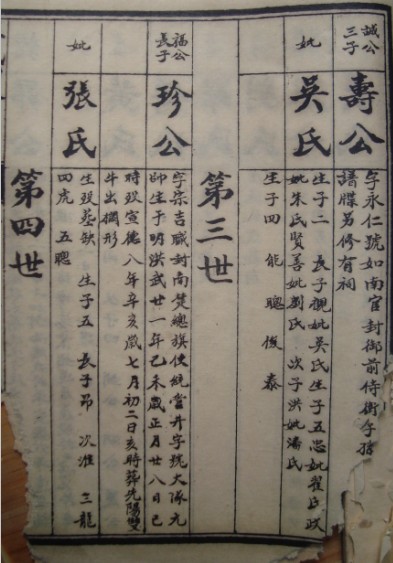 誠公
三子
壽公
字永仁號如南官封御前侍衛子孫
譜牒另修有祠
妣
吳氏
生子二 長子觀妣吳氏生子五忠妣翟氏政
妣朱氏賢善妣劉氏 次子洪妣潘氏
生子四 能 聰 俊 泰
第三世
福公
長子
珍公
字宗吉威封南楚總旗使統當井字號大隊元
帥生于明洪武廿一年己未歲正月廿八日巳
時歿宣德八年辛亥歲七月初二日亥時葬光陽雙
牛出欄形
妣
張氏
生歿葬缺 生子五 長子昂 次淮 三龍
四虎 五聰
第四世